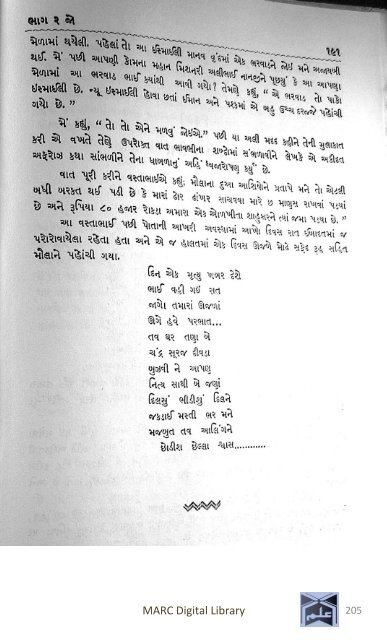 ભાગ ૨ જો
૧૯૧
મેળામાં થયેલી. પહેલાં તો આ ઇસ્માઇલી માનવ વૃંદમાં એક ભરવાડને જોઇ મને અજાયબી
થઈ. મેં પછી આપણી કોમના મહાન મિશનરી અલીભાઈ નાનજીને પૂછ્યું કે આ આપણા
મેળામાં આ ભરવાડ ભાઈ ક્યાંથી આવી ગયો? તેમણે કહ્યું, “ એ ભરવાડ તો પાકો
ઇસ્માઇલી છે. ન્યૂ ઇસ્માઇલી હોવા છતાં ઈમાન અને ધરમમાં એ બહુ ઉચ્ચ દરજ્જે પહોંચી
ગયો છે. ”
મેં કહ્યું, “ તો તો એને મળવું જોઇએ.” પછી યા અલી મદદ કહીને તેની મુલાકાત
કરી એ વખતે તેણે ઉપરોક્ત વાત ભાવભીના શબ્દોમાં સંભળાવીને લેખકે એ અકીદત
અફરોઝ કથા સાંભળીને તેના ધાબળાનું અહિં ધ્વજારોપણ કર્યું છે.
વાત પૂરી કરીને વસ્તાભાઈએ કહ્યું: મૌલાના દુઆ આશિષોને પ્રતાપે મને તો એટલી
બધી બરકત થઈ પડી છે કે મારાં ઢોર ઢાંખર સાચરવા મારે છ માણસ રાખવાં પડયાં
છે અને રૂપિયા ૮૦ હજાર રોકડા અમારા એક ઓળખીતા શાહુકારને ત્યાં જમા પડયા છે. ”
આ વસ્તાભાઈ પછી પોતાની આખરી અવસ્થામાં આખો દિવસ રાત ઈબાદતમાં જ
પરોવાયેલા રહેતા હતા અને એ જ હાલતમાં એક દિવસ ઊજળે મોઢે સફેદ રૂહ સહિત
મૌલાને પહોંચી ગયા.
દિન એક મૃત્યુ ખબર દેશે
ભાઈ વહી ગઈ રાત
જાગો તમારાં ઊજળાં
ઊગે હવે પરભાત...
તવ ઘર તણા બે
ચંદ્ર સૂરજ દીવડા
બુઝવી ને આપણ
નિત્ય સાથી બે જણાં
દિલસું ભીડીશું દિલને
જકડાઈ મસ્તી ભર મને
મજબુત તવ આલિંગને
છોડીશ છેલ્લા શ્વાસ............
MARC Digital Library
205